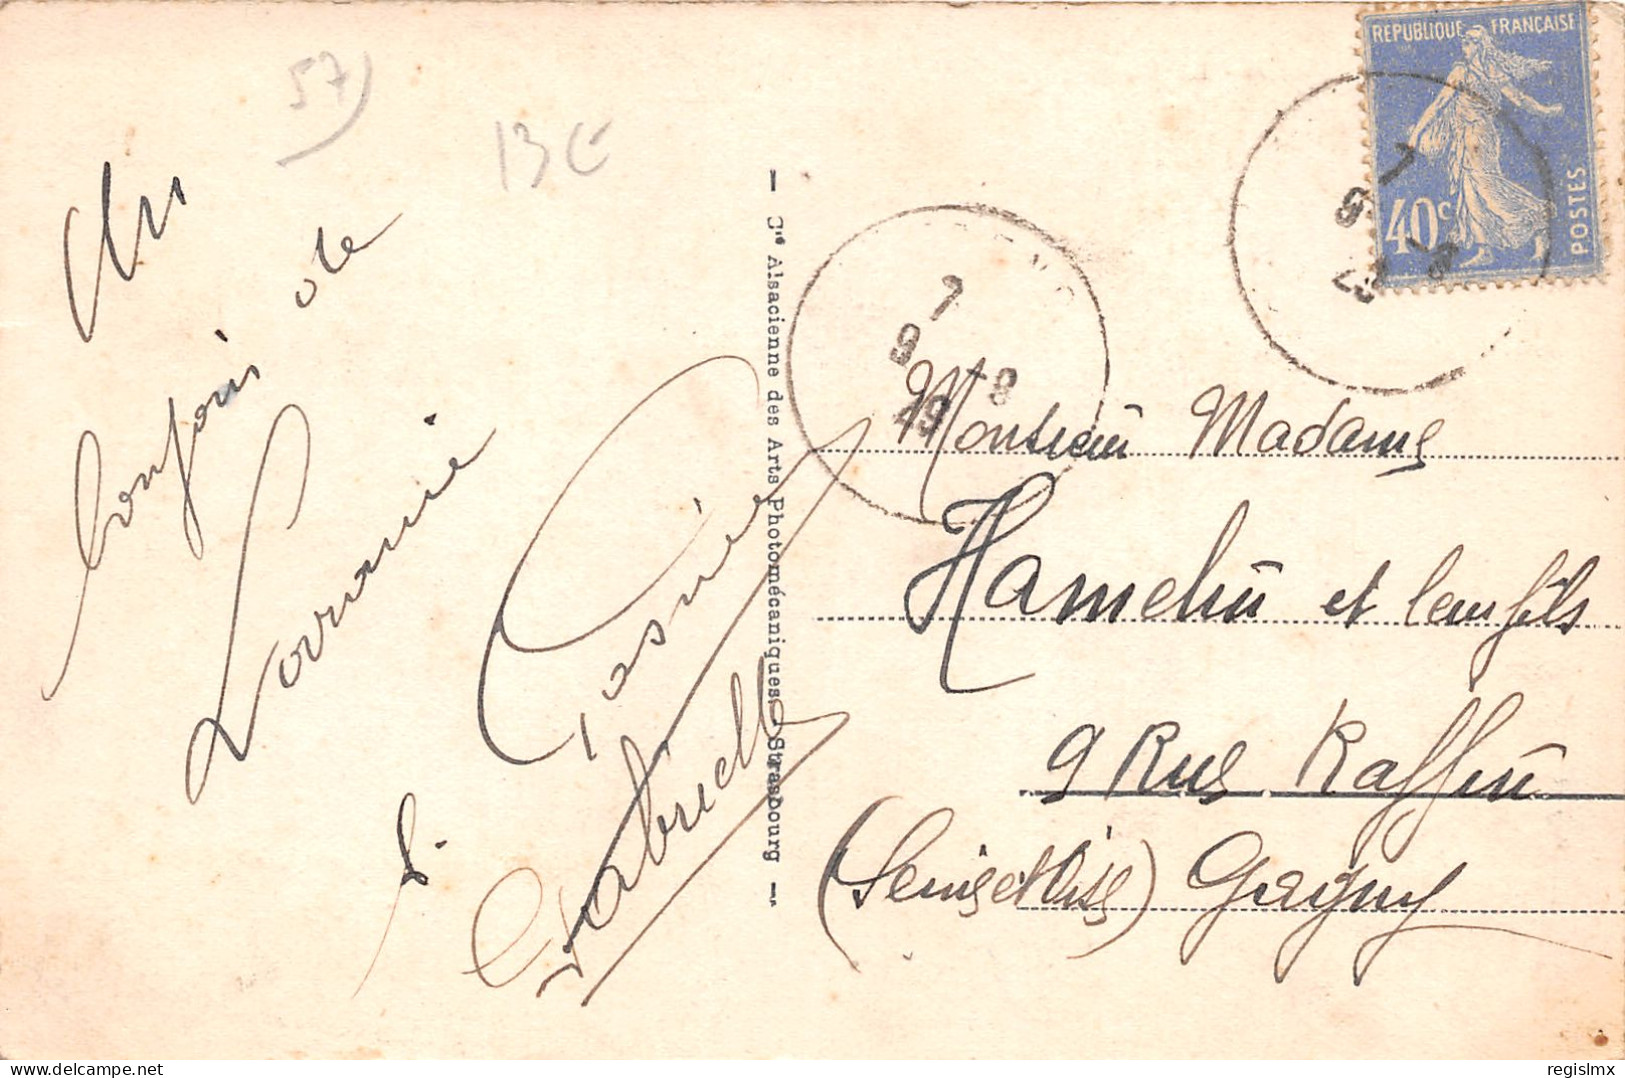 57
13 €
Un
bonjour de
Lorraine
Gabrielle
Cie Alsacienne des Arts Photomécaniques, Strasbourg
REPUBLIQUE FRANÇAISE
40c
POSTES
7
9 -8
29
7
9 -8
29
Monsieur Madame
Hamelin et leur fils
9 Rue Raffin
(Seine et Oise) Gagny
delcampe.net
regislmx